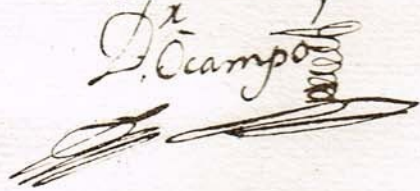 D.ʳ Ocampo